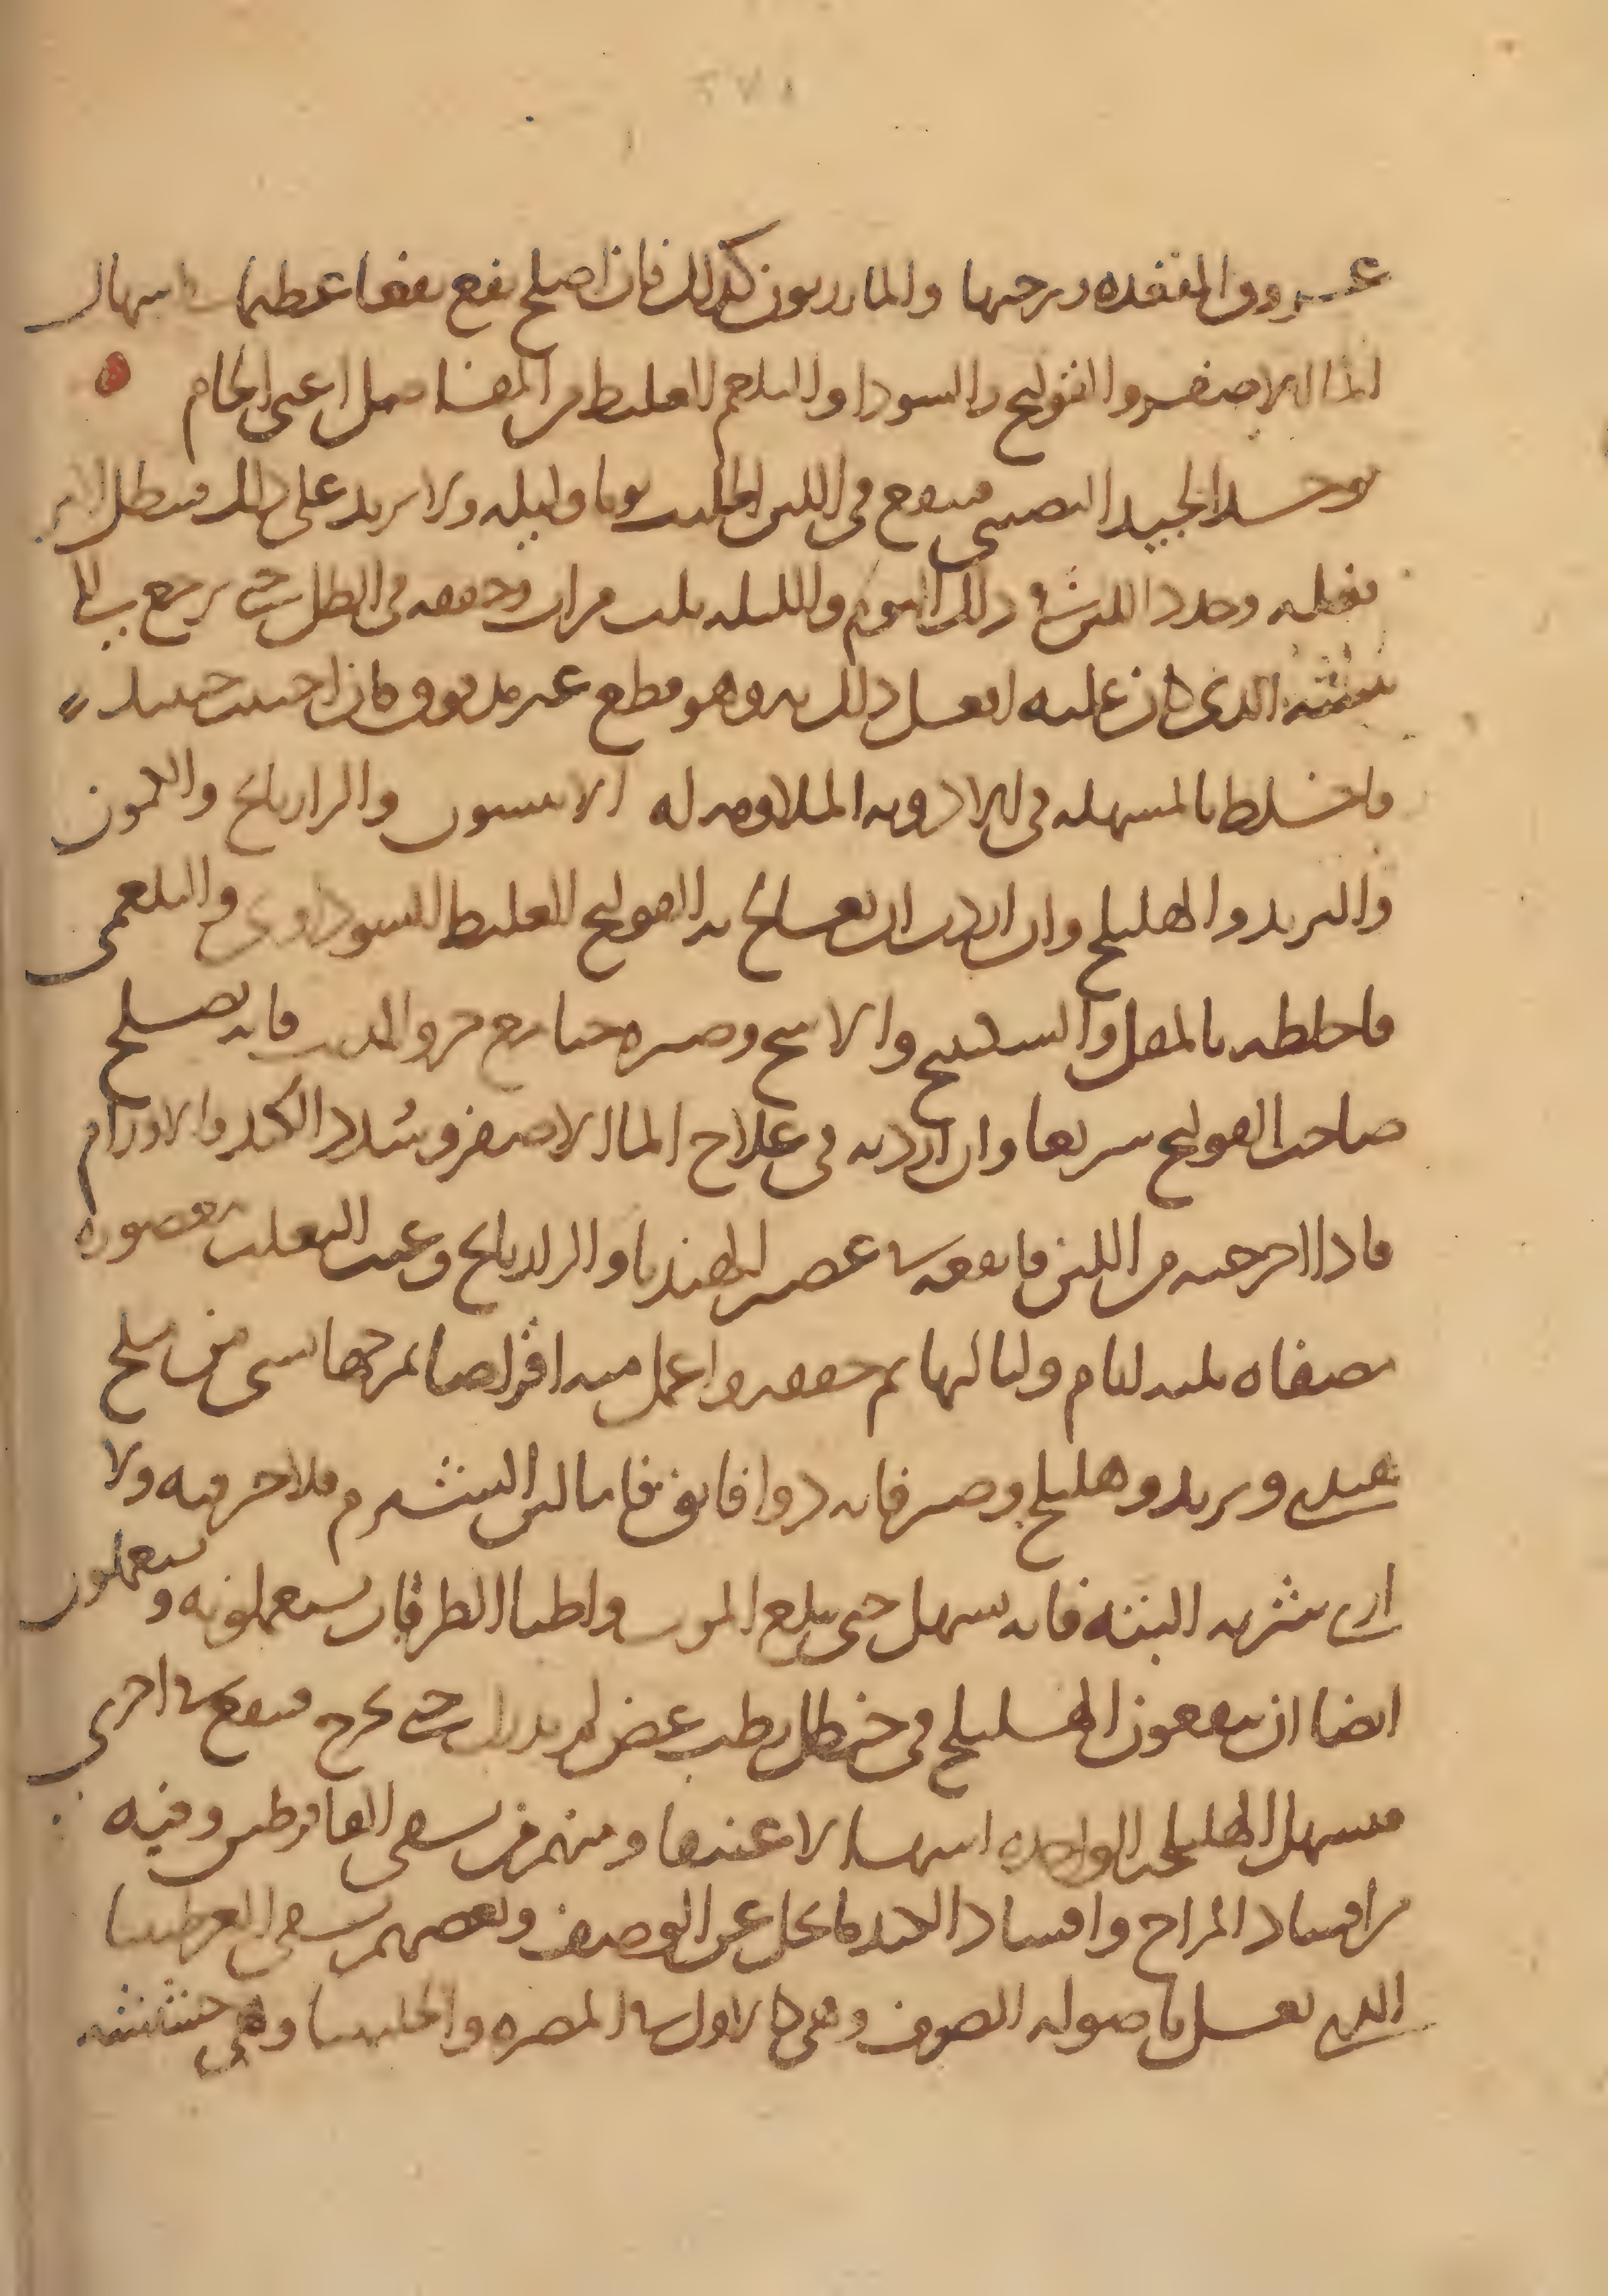 عروق المقعده ويرخيها والمازريون كذلك فان اصلح نفع نفعا عظيما باسهال
الما الاصفر والقولنج والسودا والبلغم الغليظ من المفاصل اعنى الخام
يوخذ الجيد النصبى فينقع فى اللبن الحليب يوما وليله ولا يزيد على ذلك فيبطل
فعله وجدد اللبن فى ذلك اليوم والليله ثلث مرات وجففه فى الظل حتى يرجع الى
الذى كان عليه افعل ذلك به وهو قطع غير مدقوق فان احببت حينئذ
فاخلط بالمسهله فى الادويه الملاومه له الانيسون والرازيانج والكمون
والتربد والهليلج وان اردت ان تعالج به القولنج الغليظ السوداوى والبلغمى
فاخلطه بالمقل والسكبينج والاشج وصيره حبا مع خرو الذيب فانه يصلح
صاحب القولنج سريعا وان اردته فى علاج الما الاصفر وسدد الكبد والاورام
فاذا اخرجته من اللبن فانقعه فى عصير الهندبا والرازيانج وعنب الثعلب معصوره
مصفاه ثلثه ايام ولياليها ثم جففه واعمل منه اقراصا تمزجها بشى من ملح
هندى وتربد وهليلج وصبر فانه دوا فايق فاما لبن الشبرم فلا خير فيه ولا
ارى شربه البته فانه يسهل حتى يبلغ الموت واطبا الطرقات يستعملونه ويستعملون
ايضا ان ينقعون الهليلج فى حنظل رطب غض حتى يخرج فينقع فى اخرى
فيسهل الهليلجه الواحده اسهالا عنيفا ومنهم من يسقى الماقرطس وفيه
من افساد المزاج وافساد الكبد ما يجل عن الوصف وبعضهم يسقى العرطنيثا
التى يغسل باصوله الصوف وهى كالاول فى المضره والحلبيثا وهى حشيشه